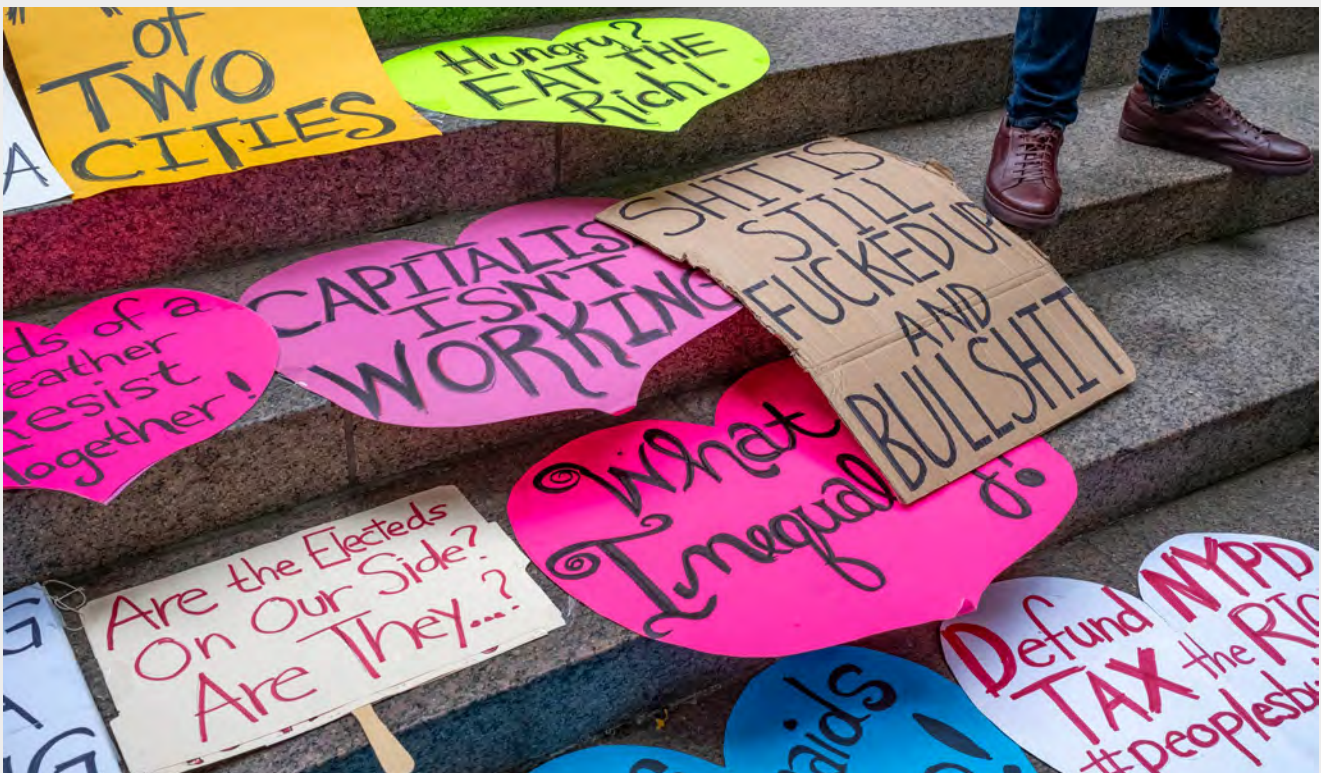 of
TWO
CITIES
A
Hungry?
EAT THE
Rich!
SHIT IS
STILL
FUCKED UP
AND
BULLSHIT
CAPITALIS
ISN'T
WORKING
ds of a
eather
Resist
Together!
What
Inequality?
Are the Electeds
On Our Side?
Are They...?
G
A
G
aids
!
Defund NYPD
TAX the RIC
#peoplesbu